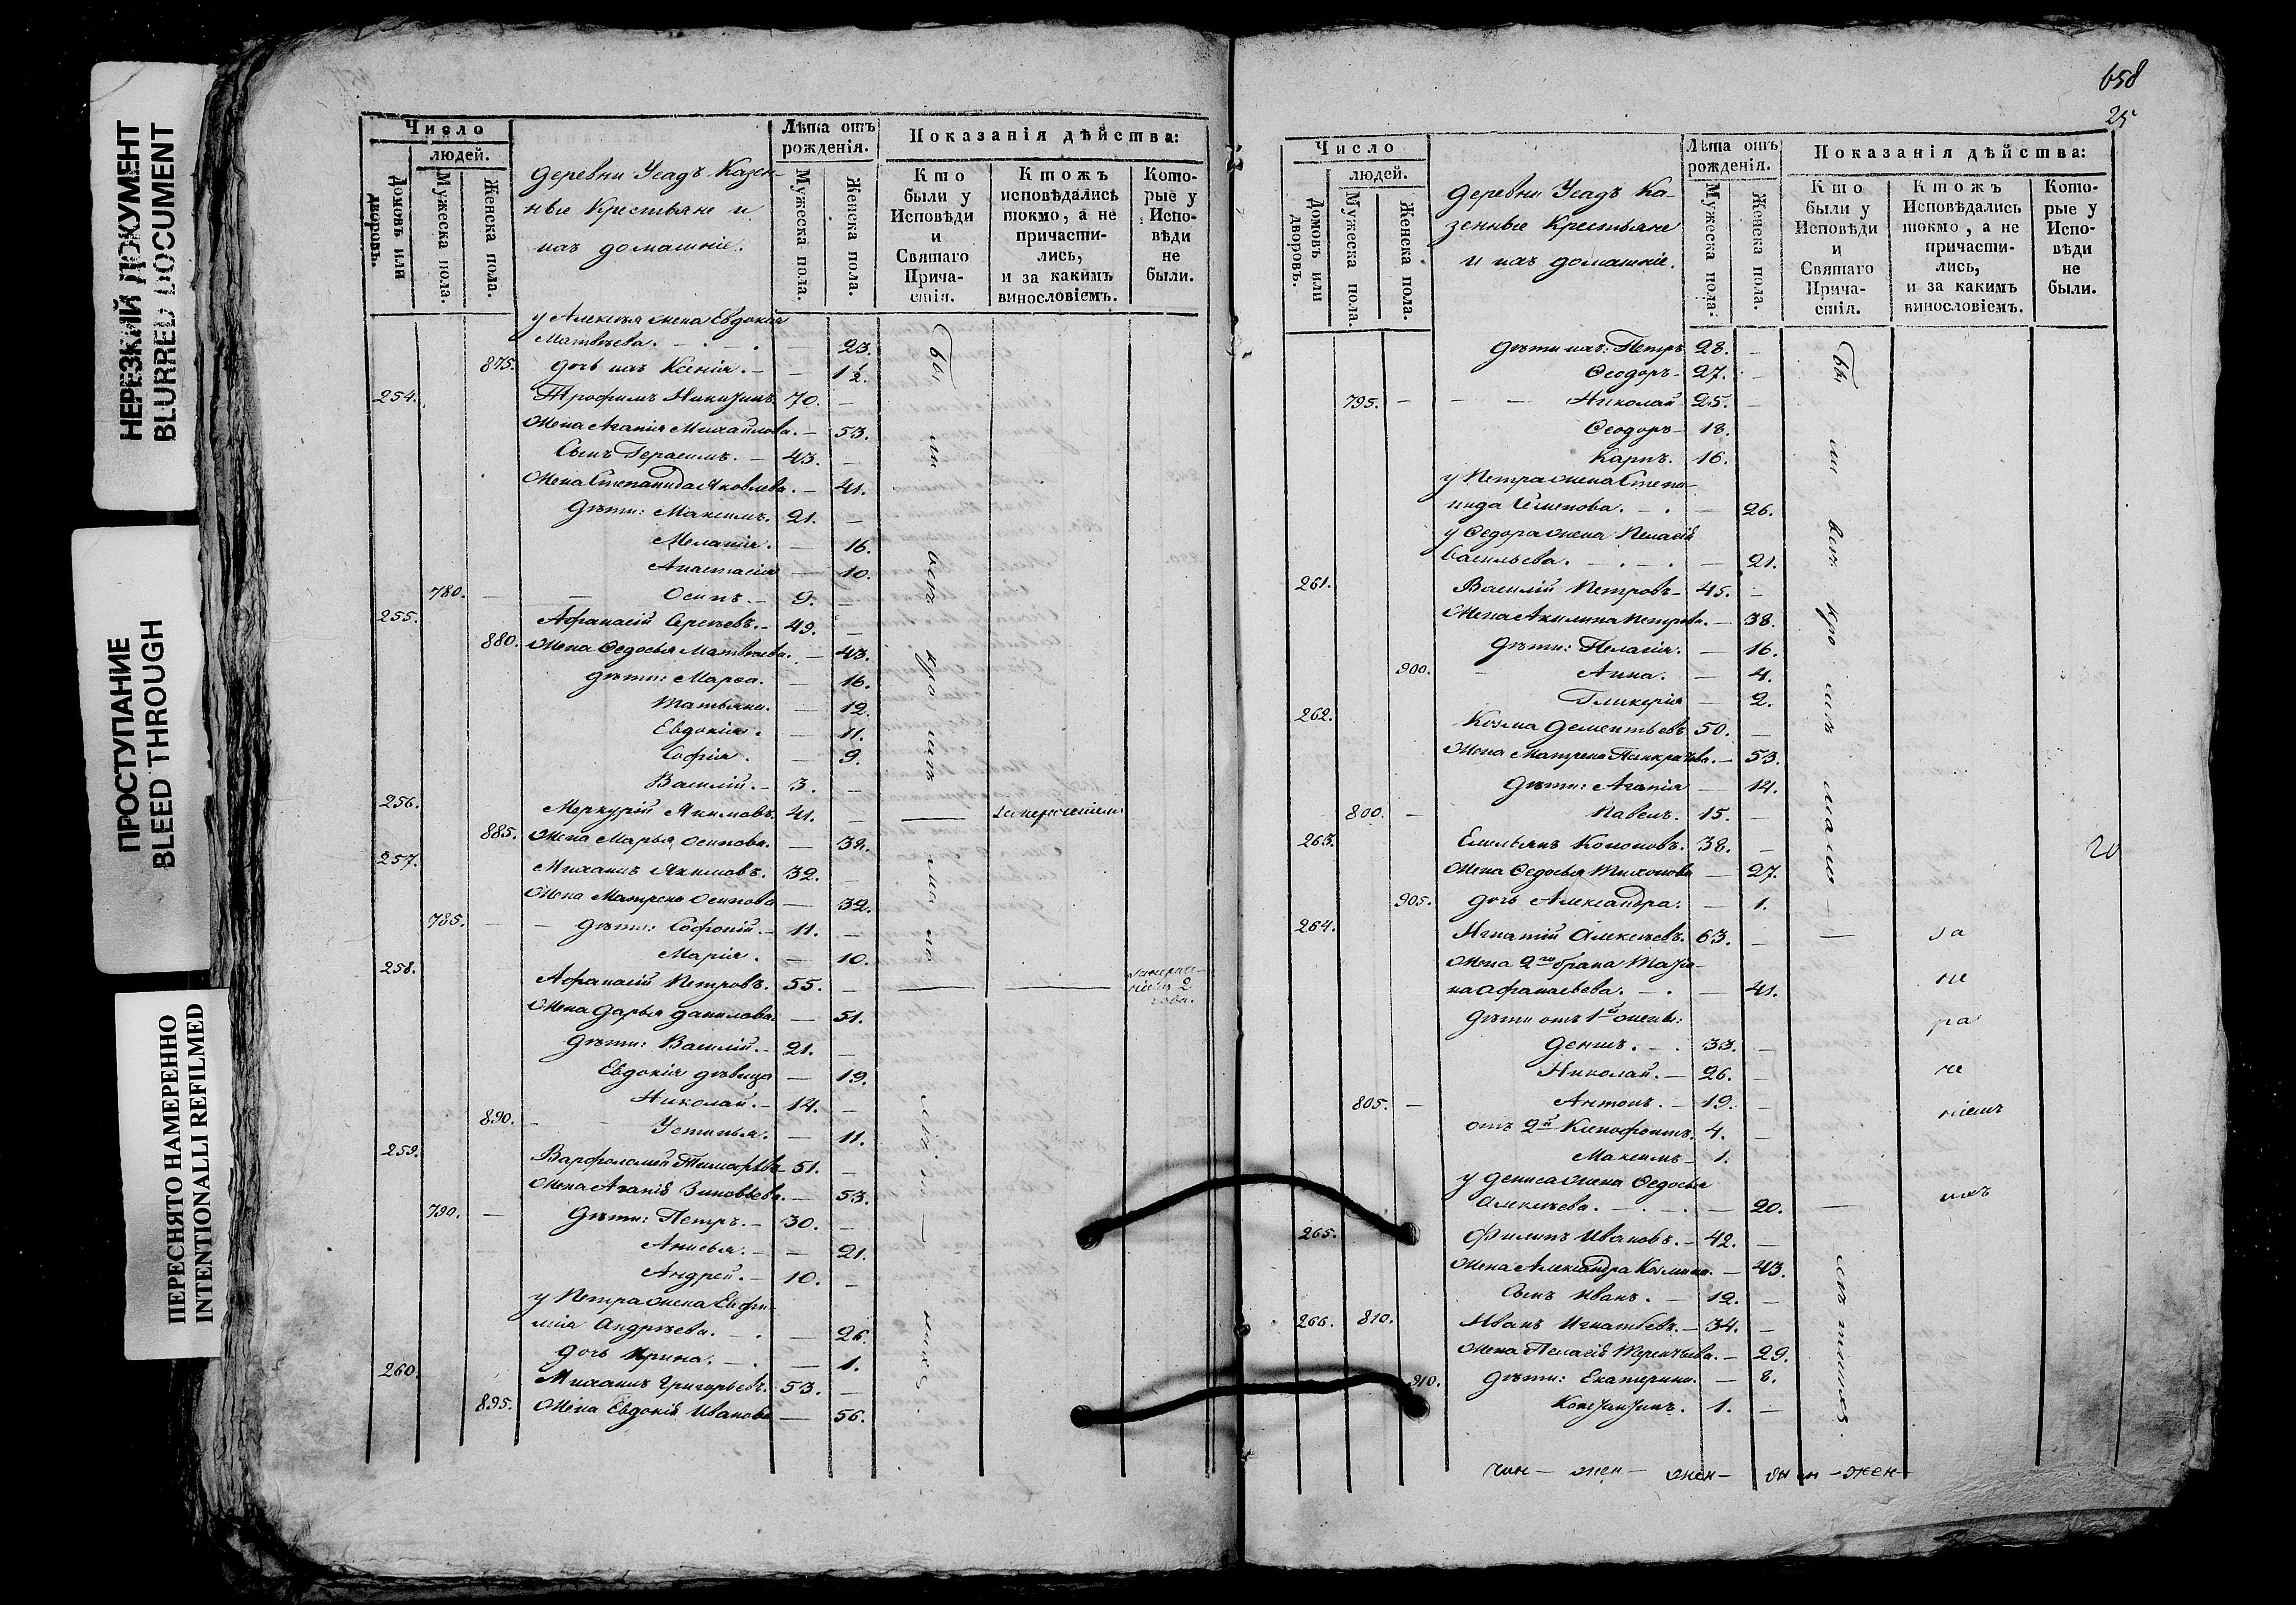 НЕРЕЗКИЙ ДОКУМЕНТ
BLURRED DOCUMENT
ПРОСТУПАНИЕ
BLEED THROUGH
ПЕРЕСНЯТО НАМЕРЕННО
INTENTIONALLI REFILMED
Число
людей.
Домовъ или дворовъ.
Мужеска пола.
Женска пола.
деревни Усадъ Казен-
ные Крестьяне и
ихъ домашніе.
Лѣта отъ рожденія.
Мужеска пола.
Женска пола.
Показанія дѣйства:
Кто были у Исповѣди и Святаго Причастія.
Ктожъ исповѣдались токмо, а не причастились, и за какимъ винословіемъ.
Которые у Исповѣди не были.
у Алексѣя жена Евдокія
Матвѣева. — 23.
875. дочь ихъ Ксенія. — 1 1/2.
254. Трофимъ Никитинъ. 70. —
Жена Агапія Михайлова. — 53.
Сынъ Герасимъ. — 43. —
Жена Степанида Яковлева. — 41.
дѣти: Максимъ. 21. —
Меланія. — 16.
Анастасія — 10.
780. — — Осипъ. — 9. —
255. Афанасій Сергѣевъ. — 49. —
880. Жена Федосья Матвѣева. — 43.
дѣти: Марѳа. — 16.
Татьяна. — 12.
Евдокія. — 11.
Софія. — 9.
Василій. — 3. —
256. Меркурій Якимовъ. 41. — — за нераченіемъ
885. Жена Марья Осипова. — 38.
257. Михаилъ Якимовъ. 32. —
Жена Матрена Осипова — 32.
785. — — дѣти: Софроній. — 11. —
Марія. — 10.
258. Афанасій Петровъ. 55. — — — за нераченіемъ 2 года.
Жена Дарья Данилова. — 51.
дѣти: Василій. — 21. —
Евдокія дѣвица — 19.
Николай. — 14. —
890. — — Устинья. — 11.
259. Варфоломей Тимофѣевъ 51. —
Жена Агапія Зиновьева. — 53.
790. — дѣти: Петръ. — 30. —
Анисья. — — 21.
Андрей. — 10. —
у Петра жена Евфи-
мія Андрѣева. — — 26.
дочь Ирина. — — 1.
260. Михаилъ Григорьевъ. 53. —
895. Жена Евдокія Иванова — 56.
бы ли всѣ кро мѣ ма лѣт нихъ.
658
25
Число
людей.
Домовъ или дворовъ.
Мужеска пола.
Женска пола.
деревни Усадъ Ка-
зенные Крестьяне
и ихъ домашніе.
Лѣта отъ рожденія.
Мужеска пола.
Женска пола.
Показанія дѣйства:
Кто были у Исповѣди и Святаго Причастія.
Ктожъ Исповѣдались токмо, а не причастились, и за какимъ винословіемъ.
Которые у Исповѣди не были.
дѣти ихъ: Петръ 28. —
Феодоръ — 27. —
795. — — — Николай — 25. —
Феодоръ — 18.
Карпъ. 16.
у Петра жена Степа-
нида Семенова. — — 26.
у Федора жена Пелагія
Васильева. — — 21.
261. Василій Петровъ — 45. —
Жена Акилина Петрова. — 38.
дѣти: Пелагія. — 16.
900. — Анна. — 4.
Гликерія — 2.
262. Козма Дементьевъ 50. —
Жена Матрена Панкратова. — 53.
дѣти: Агапія — 14.
800. — Павелъ. 15. —
263. Емельянъ Кононовъ. 38. —
Жена Федосья Тихонова — 27.
905. дочь Александра. — 1.
20
264. Игнатій Алексѣевъ. 63. —
Жена 2го брака Татья-
на Афанасьева. — — 41.
дѣти отъ 1й жены:
Денисъ. — 33. —
Николай. — 26. —
805. — Антонъ. — 19. —
отъ 2й Ксенофонтъ. 4. —
Максимъ — 1.
у Дениса жена Федосья
Алексѣева. — — 20.
за не ра че ніемъ
265. Филипъ Ивановъ. — 42. —
Жена Александра Козмина. — 43.
Сынъ Иванъ. — 12. —
266. 810. Иванъ Игнатьевъ. — 34. —
Жена Пелагія Терентьева. — 29.
910. дѣти: Екатерина. — 8.
Констянтинъ. 1. —
бы ли всѣ кро мѣ мало — лѣтнихъ.